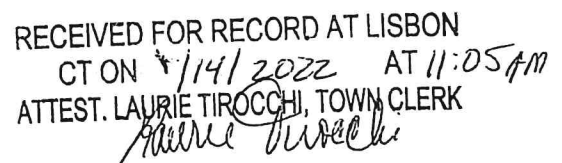 RECEIVED FOR RECORD AT LISBON
CT ON /14/2022 AT 11:05 AM
ATTEST. LAURIE TIROCCHI, TOWN CLERK
Laurie Tirocchi